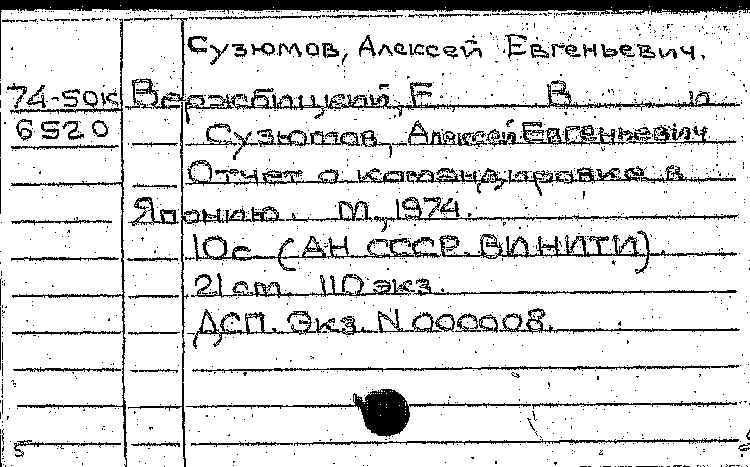 Сузюмов, Алексей Евгеньевич.
74-50К Вержбицкий, Е В и
6520 Сузюмов, Алексей Евгеньевич
Отчет о командировке в
Японию. М., 1974.
10с (АН СССР. ВИНИТИ).
21 cm. 110 экз.
ДСП. Экз. N 000008.
5